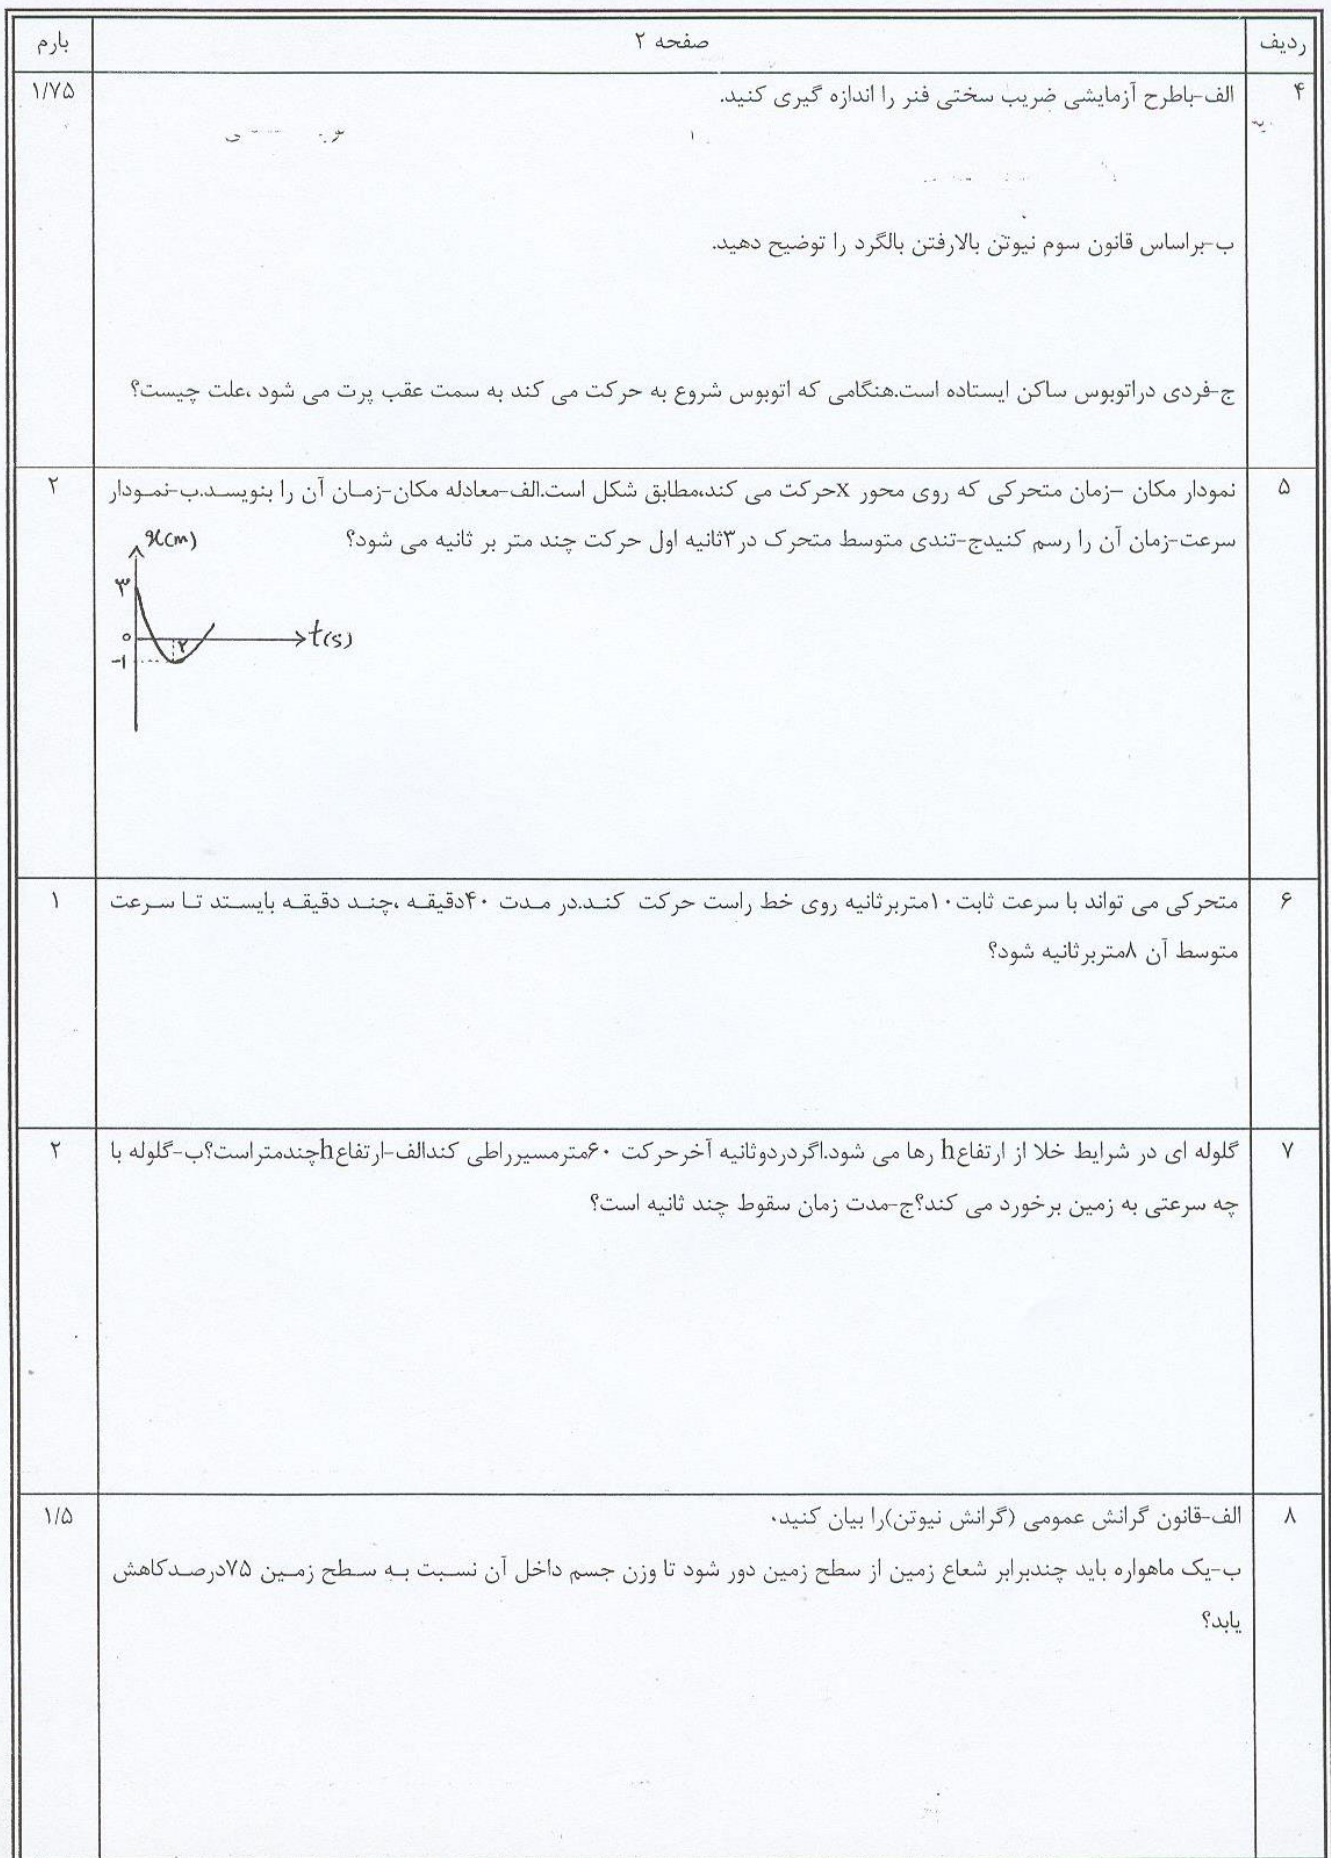 ردیف
صفحه ۲
بارم
۴
الف-باطرح آزمایشی ضریب سختی فنر را اندازه گیری کنید.
۱/۷۵
ب-براساس قانون سوم نیوتن بالارفتن بالگرد را توضیح دهید.
ج-فردی دراتوبوس ساکن ایستاده است.هنگامی که اتوبوس شروع به حرکت می کند به سمت عقب پرت می شود ،علت چیست؟
۵
نمودار مکان –زمان متحرکی که روی محور xحرکت می کند،مطابق شکل است.الف-معادله مکان-زمـان آن را بنویسـد.ب-نمـودار
۲
سرعت-زمان آن را رسم کنیدج-تندی متوسط متحرک در۳ثانیه اول حرکت چند متر بر ثانیه می شود؟
x(m)
۳
۰
۲
t(s)
-۱
۶
متحرکی می تواند با سرعت ثابت۱۰متربرثانیه روی خط راست حرکت کنـد.در مـدت ۴۰دقیقـه ،چنـد دقیقـه بایسـتد تـا سـرعت
۱
متوسط آن ۸متربرثانیه شود؟
۷
گلوله ای در شرایط خلا از ارتفاعh رها می شود.اگردردوثانیه آخرحرکت ۶۰مترمسیرراطی کندالف-ارتفاعhچندمتراست؟ب-گلوله با
۲
چه سرعتی به زمین برخورد می کند؟ج-مدت زمان سقوط چند ثانیه است؟
۸
الف-قانون گرانش عمومی (گرانش نیوتن)را بیان کنید.
۱/۵
ب-یک ماهواره باید چندبرابر شعاع زمین از سطح زمین دور شود تا وزن جسم داخل آن نسـبت بـه سـطح زمـین ۷۵درصـدکاهش
یابد؟